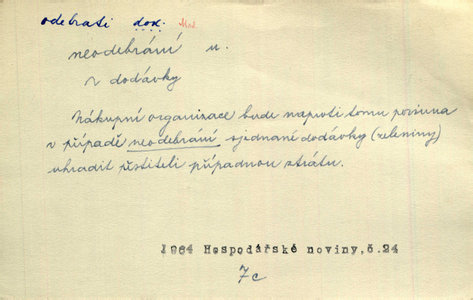 odebrati dok.
neodebrání u.
z dodávky
Nákupní organizace bude naproti tomu povinna
v případě neodebrání sjednané dodávky (zeleniny)
uhradit pěstiteli případnou ztrátu.
1964 Hospodářské noviny, č.24
7c